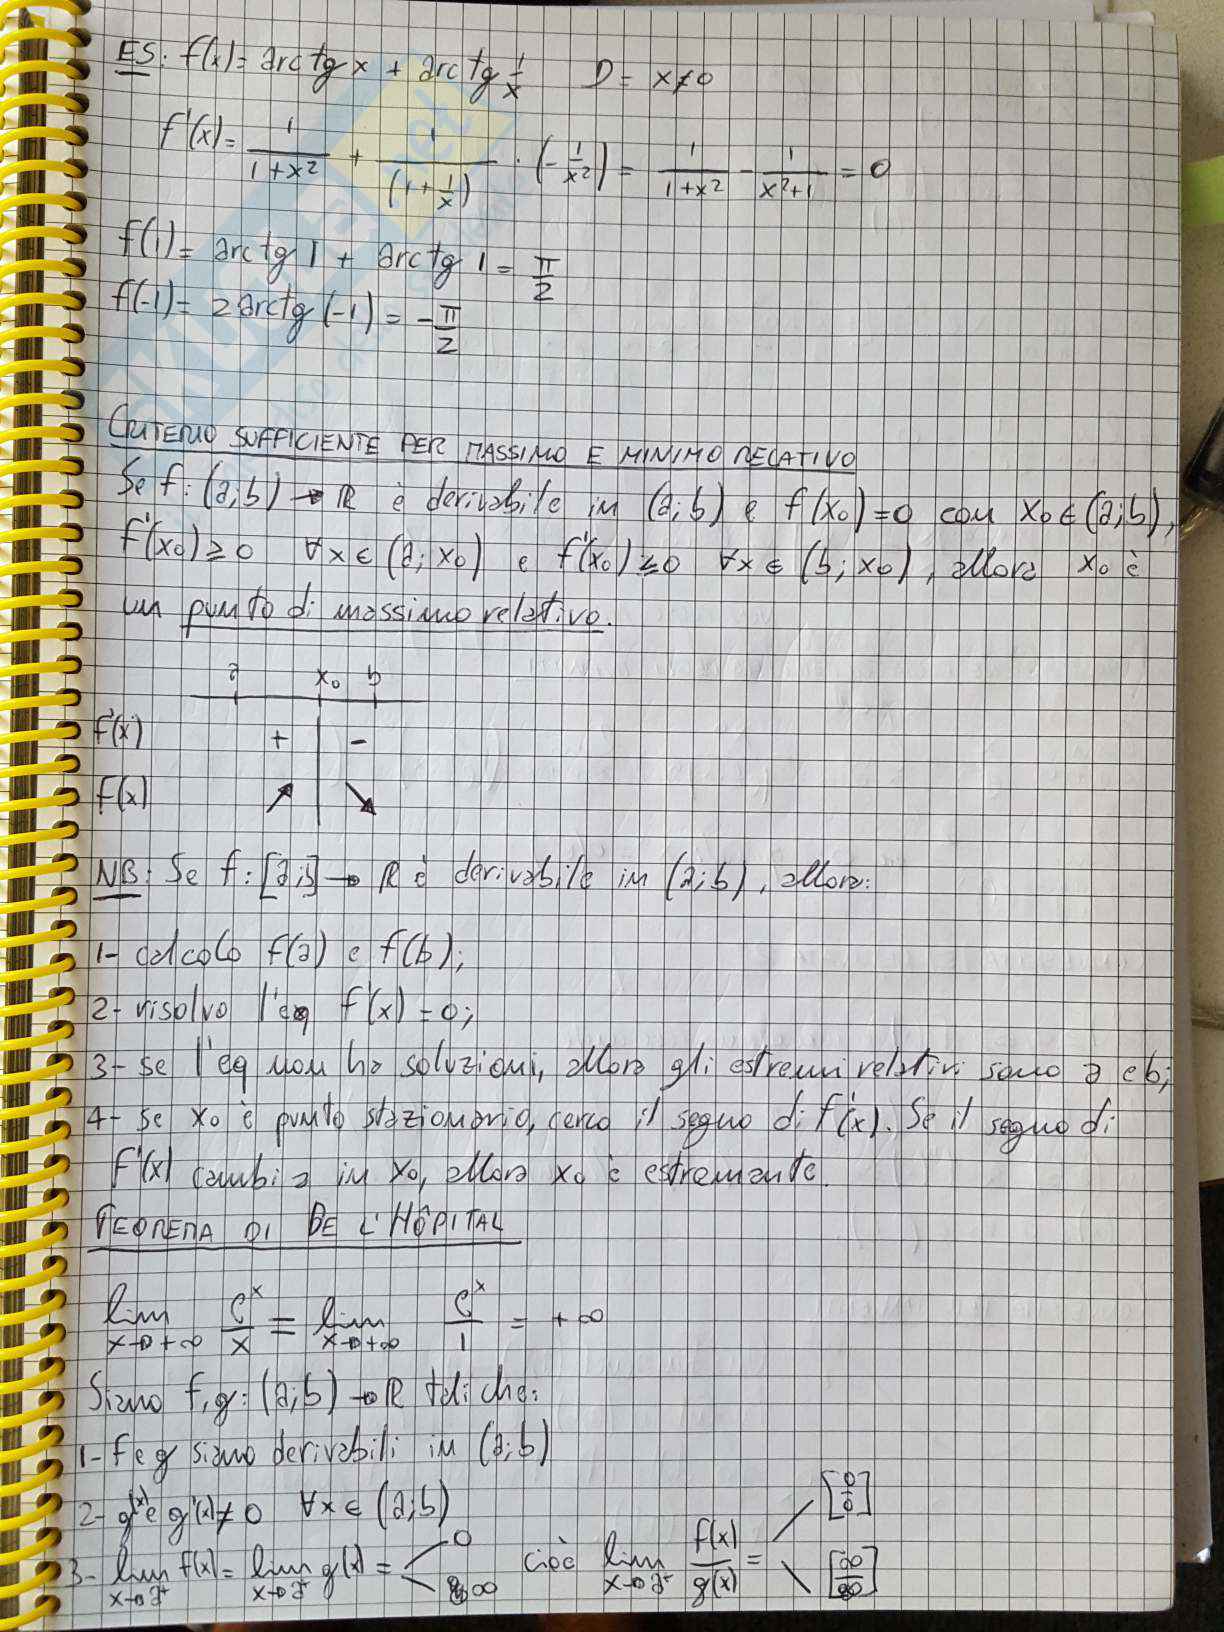 ES: f(x)= arctg x + arctg 1/x D= x≠0
f'(x)= 1/(1+x²) + 1/(1+1/x) · (-1/x²) = 1/(1+x²) - 1/(x²+1) = 0
f(1)= arctg 1 + arctg 1 = π/2
f(-1)= 2 arctg (-1) = -π/2
CRITERIO SUFFICIENTE PER MASSIMO E MINIMO RELATIVO
Se f: (a;b) → ℝ è derivabile in (a;b) e f(x₀)=0 con x₀ ∈ (a;b),
f'(x₀) ≥ 0 ∀x ∈ (a; x₀) e f'(x₀) ≤ 0 ∀x ∈ (b; x₀), allora x₀ è
un punto di massimo relativo.
a x₀ b
f'(x) + -
f(x) ↗ ↘
NB: Se f: [a;b] → ℝ è derivabile in (a;b), allora:
1- calcolo f(a) e f(b);
2- risolvo l'eq f'(x) = 0;
3- se l'eq non ha soluzioni, allora gli estremi relativi sono a e b;
4- se x₀ è punto stazionario, cerco il segno di f'(x). Se il segno di
f'(x) cambia in x₀, allora x₀ è estremante.
TEOREMA DI DE L'HÔPITAL
lim x→+∞ eˣ/x = lim x→+∞ eˣ/1 = +∞
Siano f,g: (a;b) → ℝ tali che:
1- f e g siano derivabili in (a;b)
2- g(x) e g'(x) ≠ 0 ∀x ∈ (a;b)
3- lim x→a⁺ f(x) = lim x→a⁺ g(x) = < 0 ∞ cioè lim x→a⁺ f(x)/g(x) = [0/0] [∞/∞]